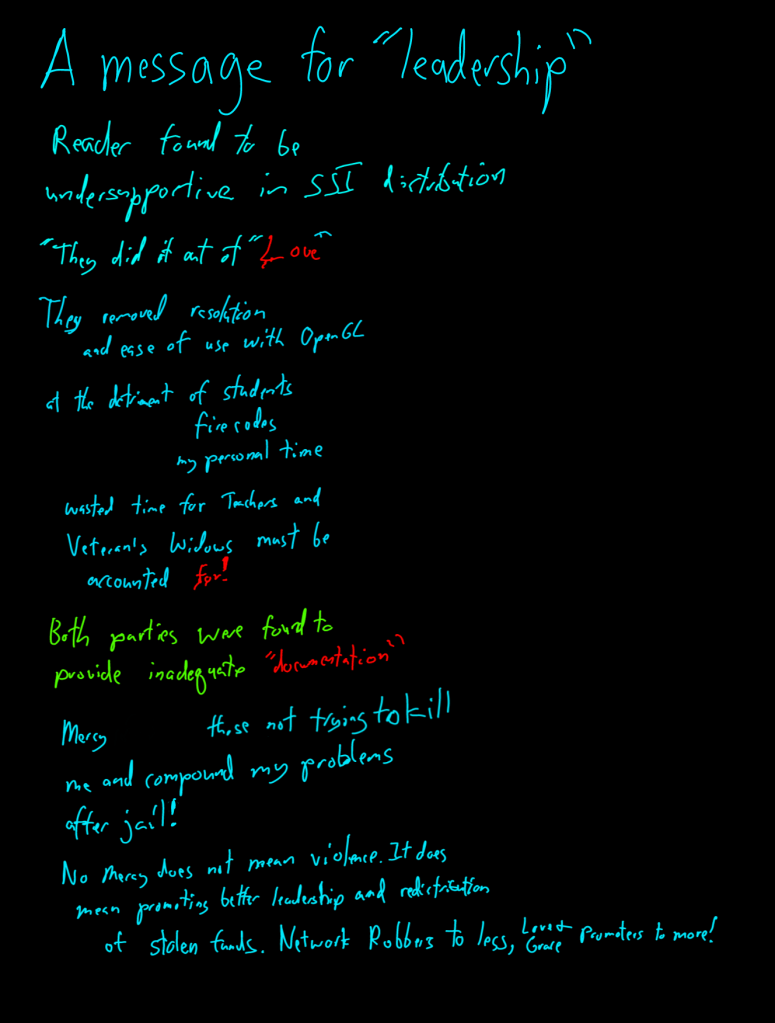 A message for "leadership"
Reader found to be
undersupportive in SSI distribution
"They did it out of "Love"
They removed resolution
and ease of use with OpenGL
at the detriment of students
fire codes
my personal time
wasted time for Teachers and
Veteran's Widows must be
accounted for!
Both parties were found to
provide inadequate "documentation"
Mercy those not trying to kill
me and compound my problems
after jail!
No Mercy does not mean violence. It does
mean promoting better leadership and redistribution
of stolen funds. Network Robbers to less, Love + Grace Promoters to more!